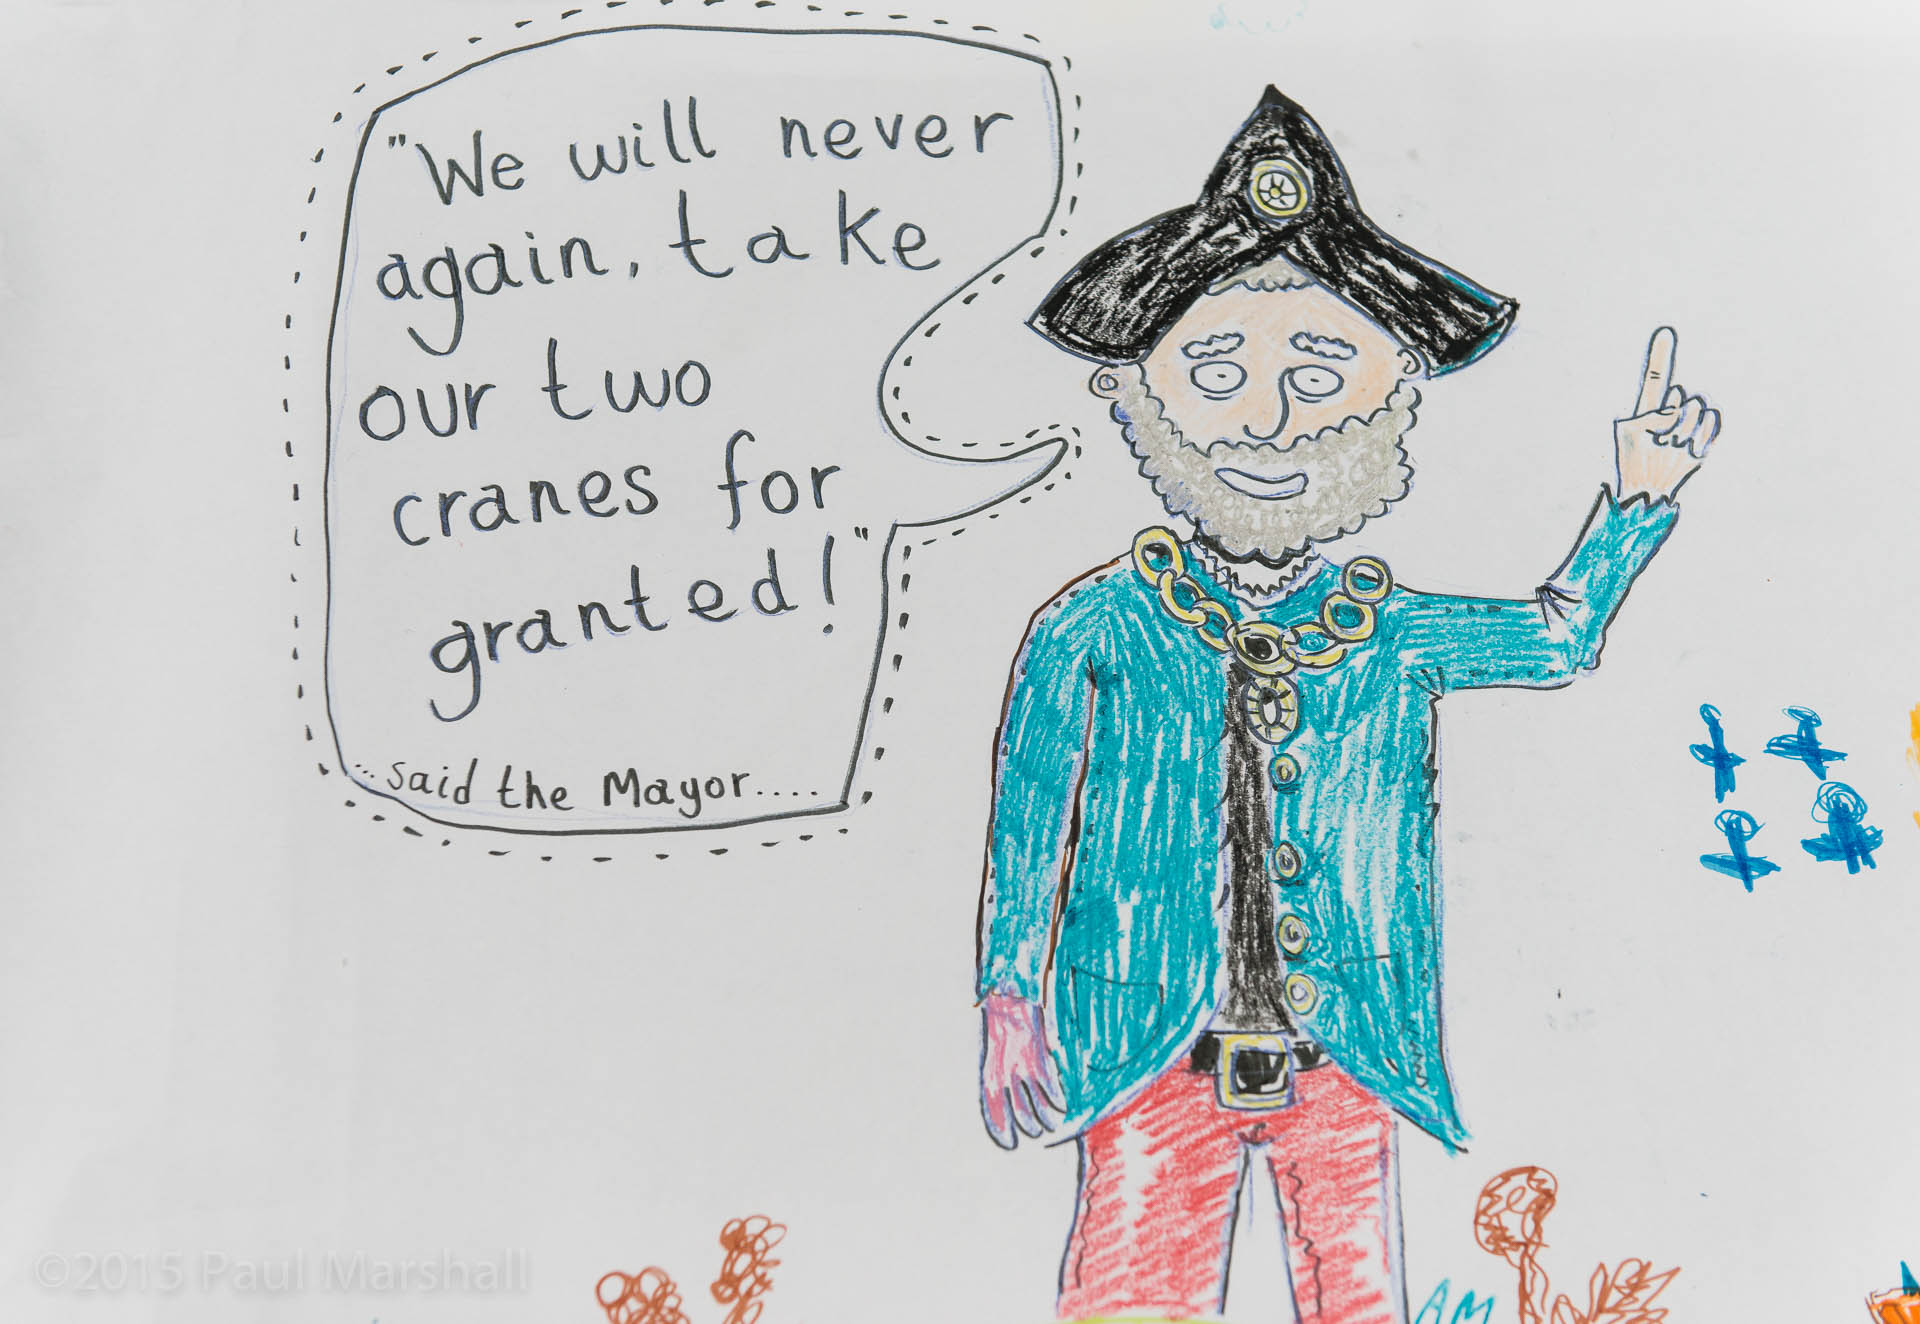 "We will never
again, take
our two
cranes for
granted!"
...said the Mayor....
AM
©2015 Paul Marshall